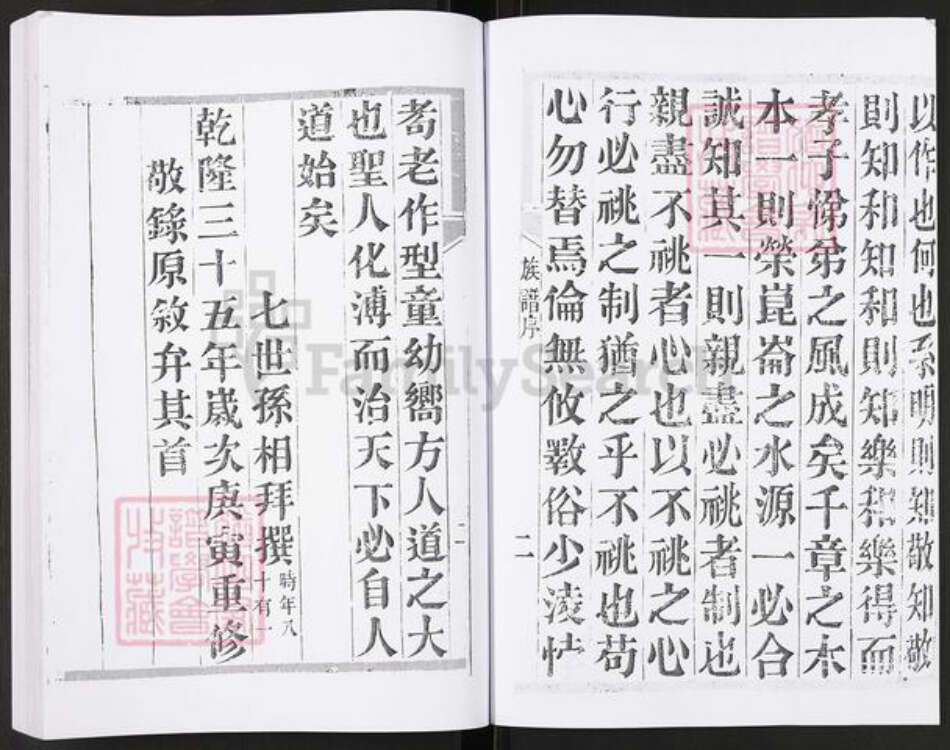 以作也何也系明則知敬知敬
則知和知和則知樂和樂得而
孝子悌弟之風成矣千章之木
本一則榮崑崙之水源一必合
誠知其一則親盡必祧者制也
親盡不祧者心也以不祧之心
行必祧之制猶之乎不祧也苟
心勿替焉倫無攸斁俗少淩怯
族譜序
二
耇老作型童幼嚮方人道之大
也聖人化溥而治天下必自人
道始矣
七世孫相拜撰時年八十有一
乾隆三十五年歲次庚寅重修
敬錄原敘弁其首
FamilySearch